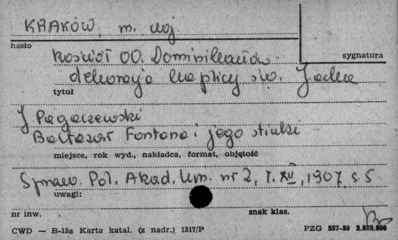 KRAKÓW, m. woj
hasło
Kościół OO. Dominikanów
sygnatura
dekoracja kaplicy św. Jacka
tytuł
J Pagaczewski
Baltazar Fontana i jego stiuki
miejsce, rok wyd., nakładca, format, objętość
Spraw. Pol. Akad. Um. nr 2, t. XII, 1907, s. 5
uwagi:
nr inw.
znak klas.
CWD — B-15a Karta katal. (z nadr.) 1317/P
PZG 537-59